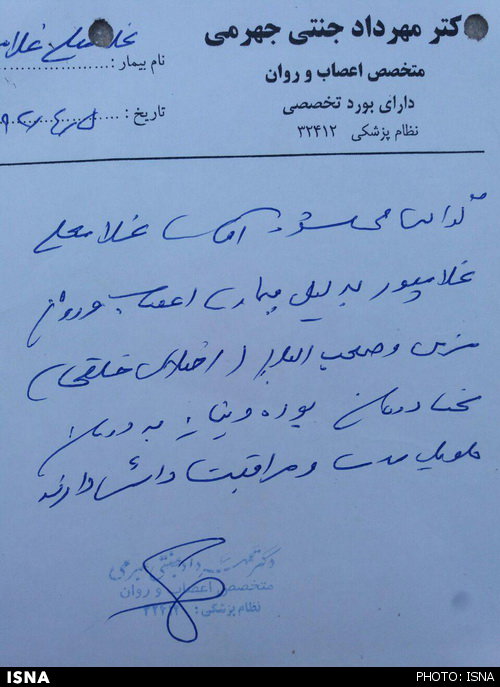 دکتر مهرداد جنتی جهرمی
متخصص اعصاب و روان
دارای بورد تخصصی
نظام پزشکی ۳۲۴۱۲
نام بیمار :
تاریخ :
گواهی می شود آقای غلامعلی
غلامپور به دلیل بیماری اعصاب و روان
مزمن و صعب العلاج (اختلال خلقی)
تحت درمان بوده و نیاز به درمان
طویل مدت و مراقبت دائم دارند
دکتر مهرداد جنتی جهرمی
متخصص اعصاب و روان
نظام پزشکی :
ISNA
PHOTO: ISNA